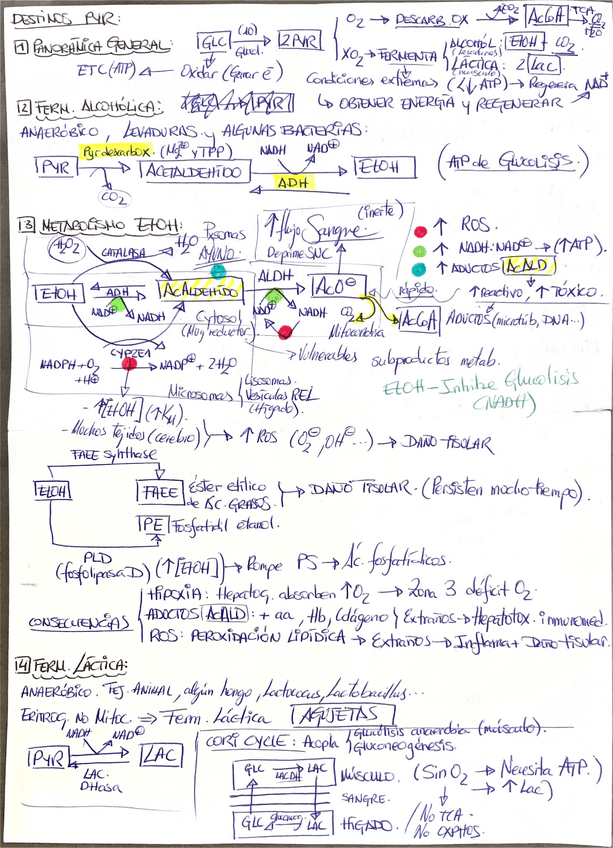 DESTINOS PYR:
O₂ → DESCARB. OX → AcCoA TCA CO₂ H₂O
CO₂
1 PANORÁMICA GENERAL: GLC (10) Glucol. 2 PYR
XO₂ → FERMENTA
ALCOHÓL: EtOH + CO₂ (levaduras)
LÁCTICA: 2 Lac. (músculo)
ETC (ATP) ← Oxidar (Ganar ē)
Condiciones extremas (↓↓ ATP) → Regenera NAD⁺
↳ OBTENER ENERGÍA y REGENERAR
2 FERM. ALCOHÓLICA:
ANAERÓBICO, LEVADURAS y ALGUNAS BACTERIAS:
Pyr descarbox. (Mg²⁺ y TPP) NADH NAD⊕
PYR → ACETALDEHÍDO → EtOH (ATP de Glucolisis)
CO₂ ADH
3 METABOLISMO EtOH:
↑ flujo Sangre. (inerte)
Deprime SNC
↑ ROS.
↑ NADH:NAD⊕ → (↑ATP).
↑ ADUCTOS AcALD
H₂O₂ CATALASA H₂O
AYUNO
EtOH ADH AcALDEHÍDO ALDH AcO⊖ rápido ↑ reactivo, ↑ TÓXICO.
NAD⊕ NADH NAD⊕ NADH CO₂ AcCoA ADUCTOS (microtúb, DNA...)
Cytosol (Muy reductor) Mitocondria
CYP2E1
NADPH + O₂ + H⊕ → NADP⊕ + 2H₂O
→ Vulnerables subproductos metab.
Microsomas Lisosomas. Vesículas REL (Hígado).
EtOH – Inhibe Glucolisis (NADH)
- ↑[EtOH] (↑ KM)
- Muchos tejidos (cerebro) → ↑ ROS (O₂⊖, OH⊖ ...) → DAÑO TISULAR
FAEE synthase
EtOH FAEE Éster etílico de ÁC. GRASOS. → DAÑO TISULAR. (Persisten mucho tiempo).
PE Fosfatidil etanol.
PLD (fosfolipasa D) (↑[EtOH]) → Rompe PS → Ác. fosfatídicos.
CONSECUENCIAS
HIPOXIA: Hepatoc. absorben ↑O₂ → Zona 3 déficit O₂.
ADUCTOS AcALD: + aa, Hb, Colágeno Extraños → Hepatotox. inmunomed.
ROS: PEROXIDACIÓN LIPÍDICA → Extraños → Inflama + Daño tisular.
4 FERM. LÁCTICA:
ANAERÓBICO. TEJ. ANIMAL, algún hongo, Lactococcus, Lactobacillus...
Eritroc. No Mitoc. ⇒ Ferm. Láctica AGUJETAS
NADH NAD⊕
PYR LAC
LAC. DHasa
CORI CYCLE: Acopla Glucólisis anaerobia (músculo). Gluconeogénesis.
GLC LACDH LAC MÚSCULO. (Sin O₂ → Necesita ATP. → ↑ Lac)
SANGRE.
GLC gluconeog LAC HÍGADO.
No TCA
No OXPHOS.